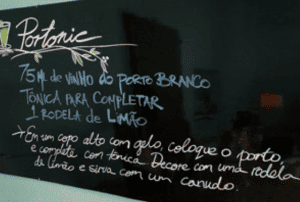 Portonic
75 ml de VINHO do PORTO BRANCO
TÔNICA PARA COMPLETAR
1 RODELA DE LIMÃO
→ Em um copo alto com gelo, coloque o porto
e complete com tônica. Decore com uma rodela
de limão e sirva com um canudo.